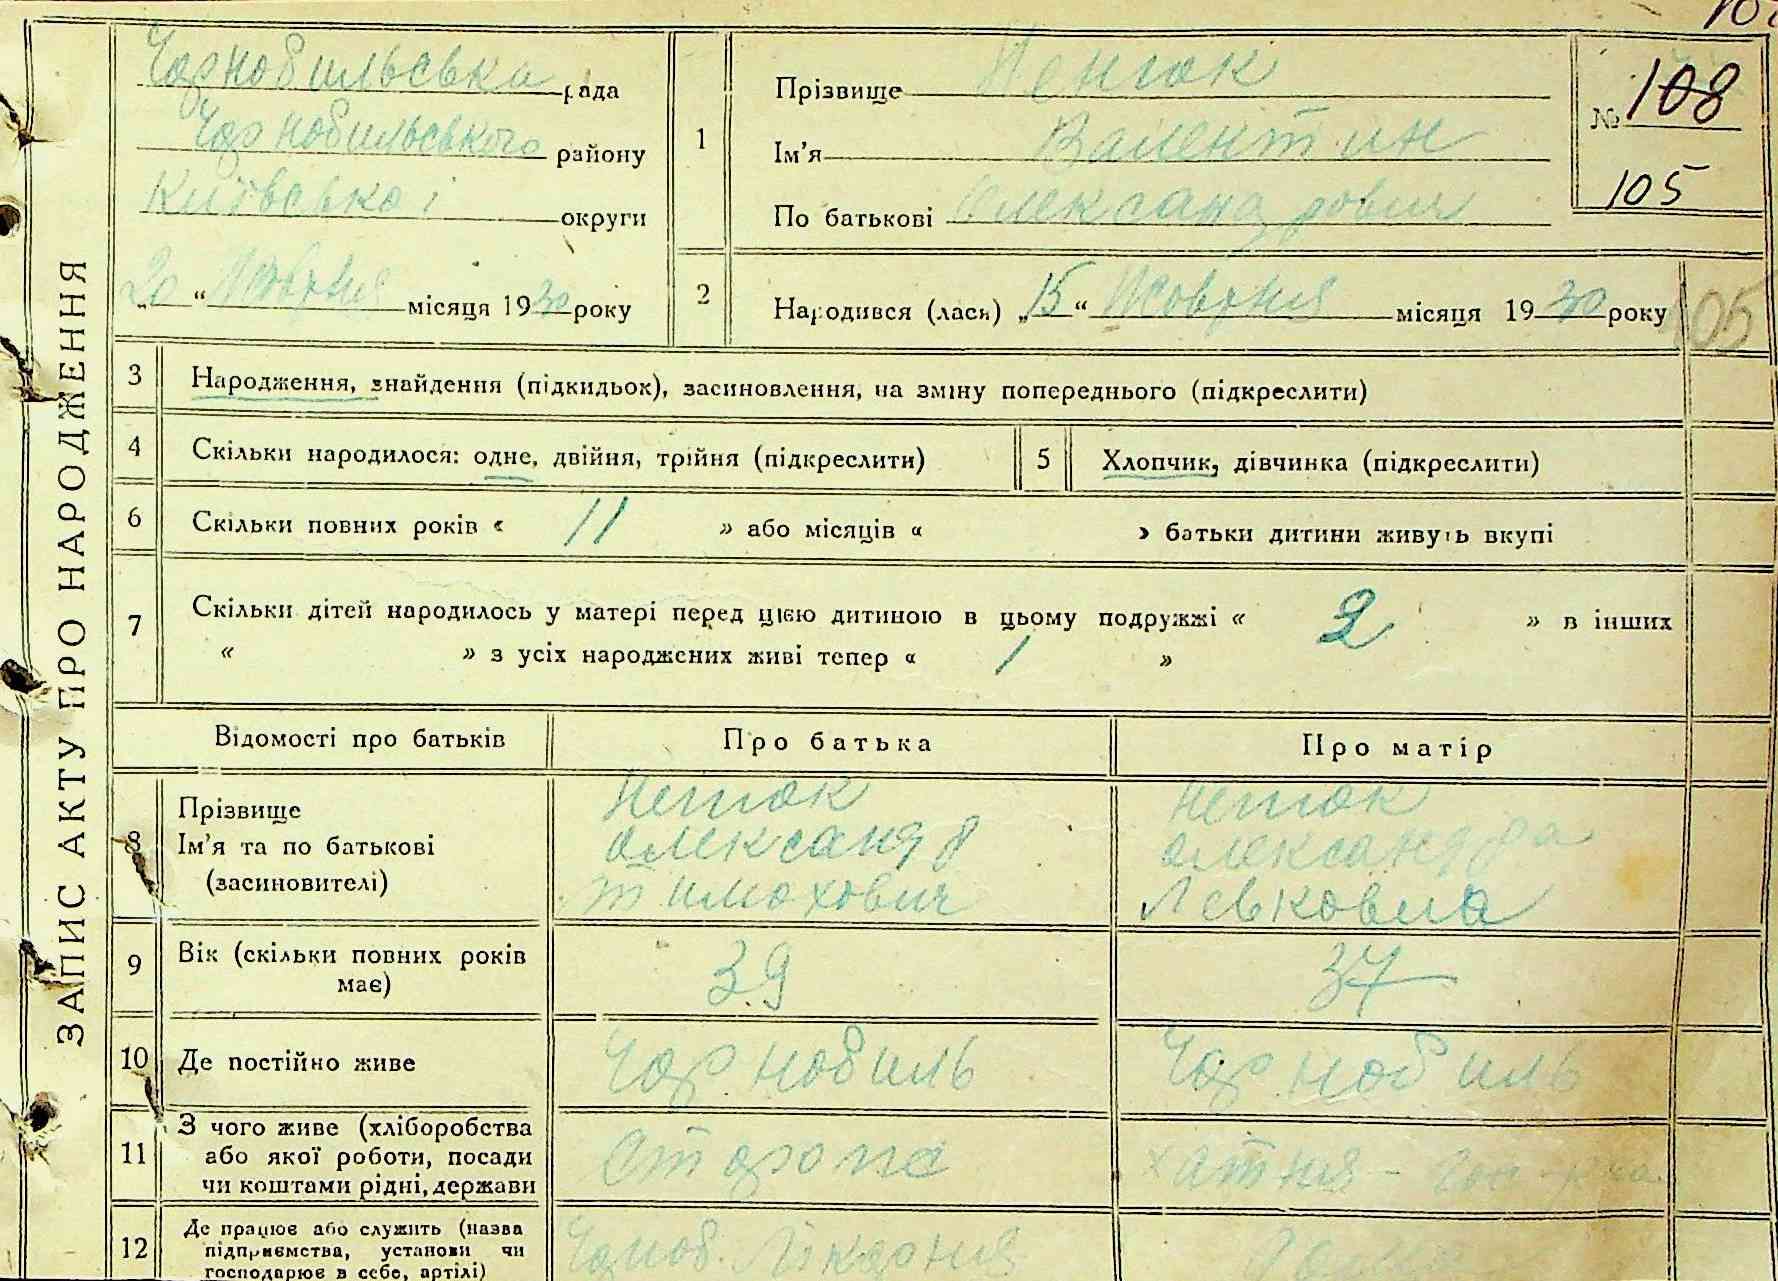 ЗАПИС АКТУ ПРО НАРОДЖЕННЯ
Чорнобильська рада
Чорнобильського району
Київської округи
„20“ Жовтня місяця 1930 року
1 Прізвище
Ім'я Валентин
По батькові Олександрович
№ 108
105
2 Народився (лася) „15“ Жовтня місяця 1930 року
105
3 Народження, знайдення (підкидьок), засиновлення, на зміну попереднього (підкреслити)
4 Скільки народилося: одне, двійня, трійня (підкреслити)
5 Хлопчик, дівчинка (підкреслити)
6 Скільки повних років « 11 » або місяців « » батьки дитини живуть вкупі
7 Скільки дітей народилось у матері перед цією дитиною в цьому подружжі « 2 » в інших
« » з усіх народжених живі тепер « 1 »
Відомості про батьків
Про батька
Про матір
8 Прізвище
Ім'я та по батькові
(засиновителі)
Олександр
Тимохович
Олександра
Левковна
9 Вік (скільки повних років
має)
39
37
10 Де постійно живе
Чорнобиль
Чорнобиль
11 З чого живе (хліборобства
або якої роботи, посади
чи коштами рідні, держави
Сторож
хатня
12 Де працює або служить (назва
підприємства, установи чи
господарює в себе, артілі)